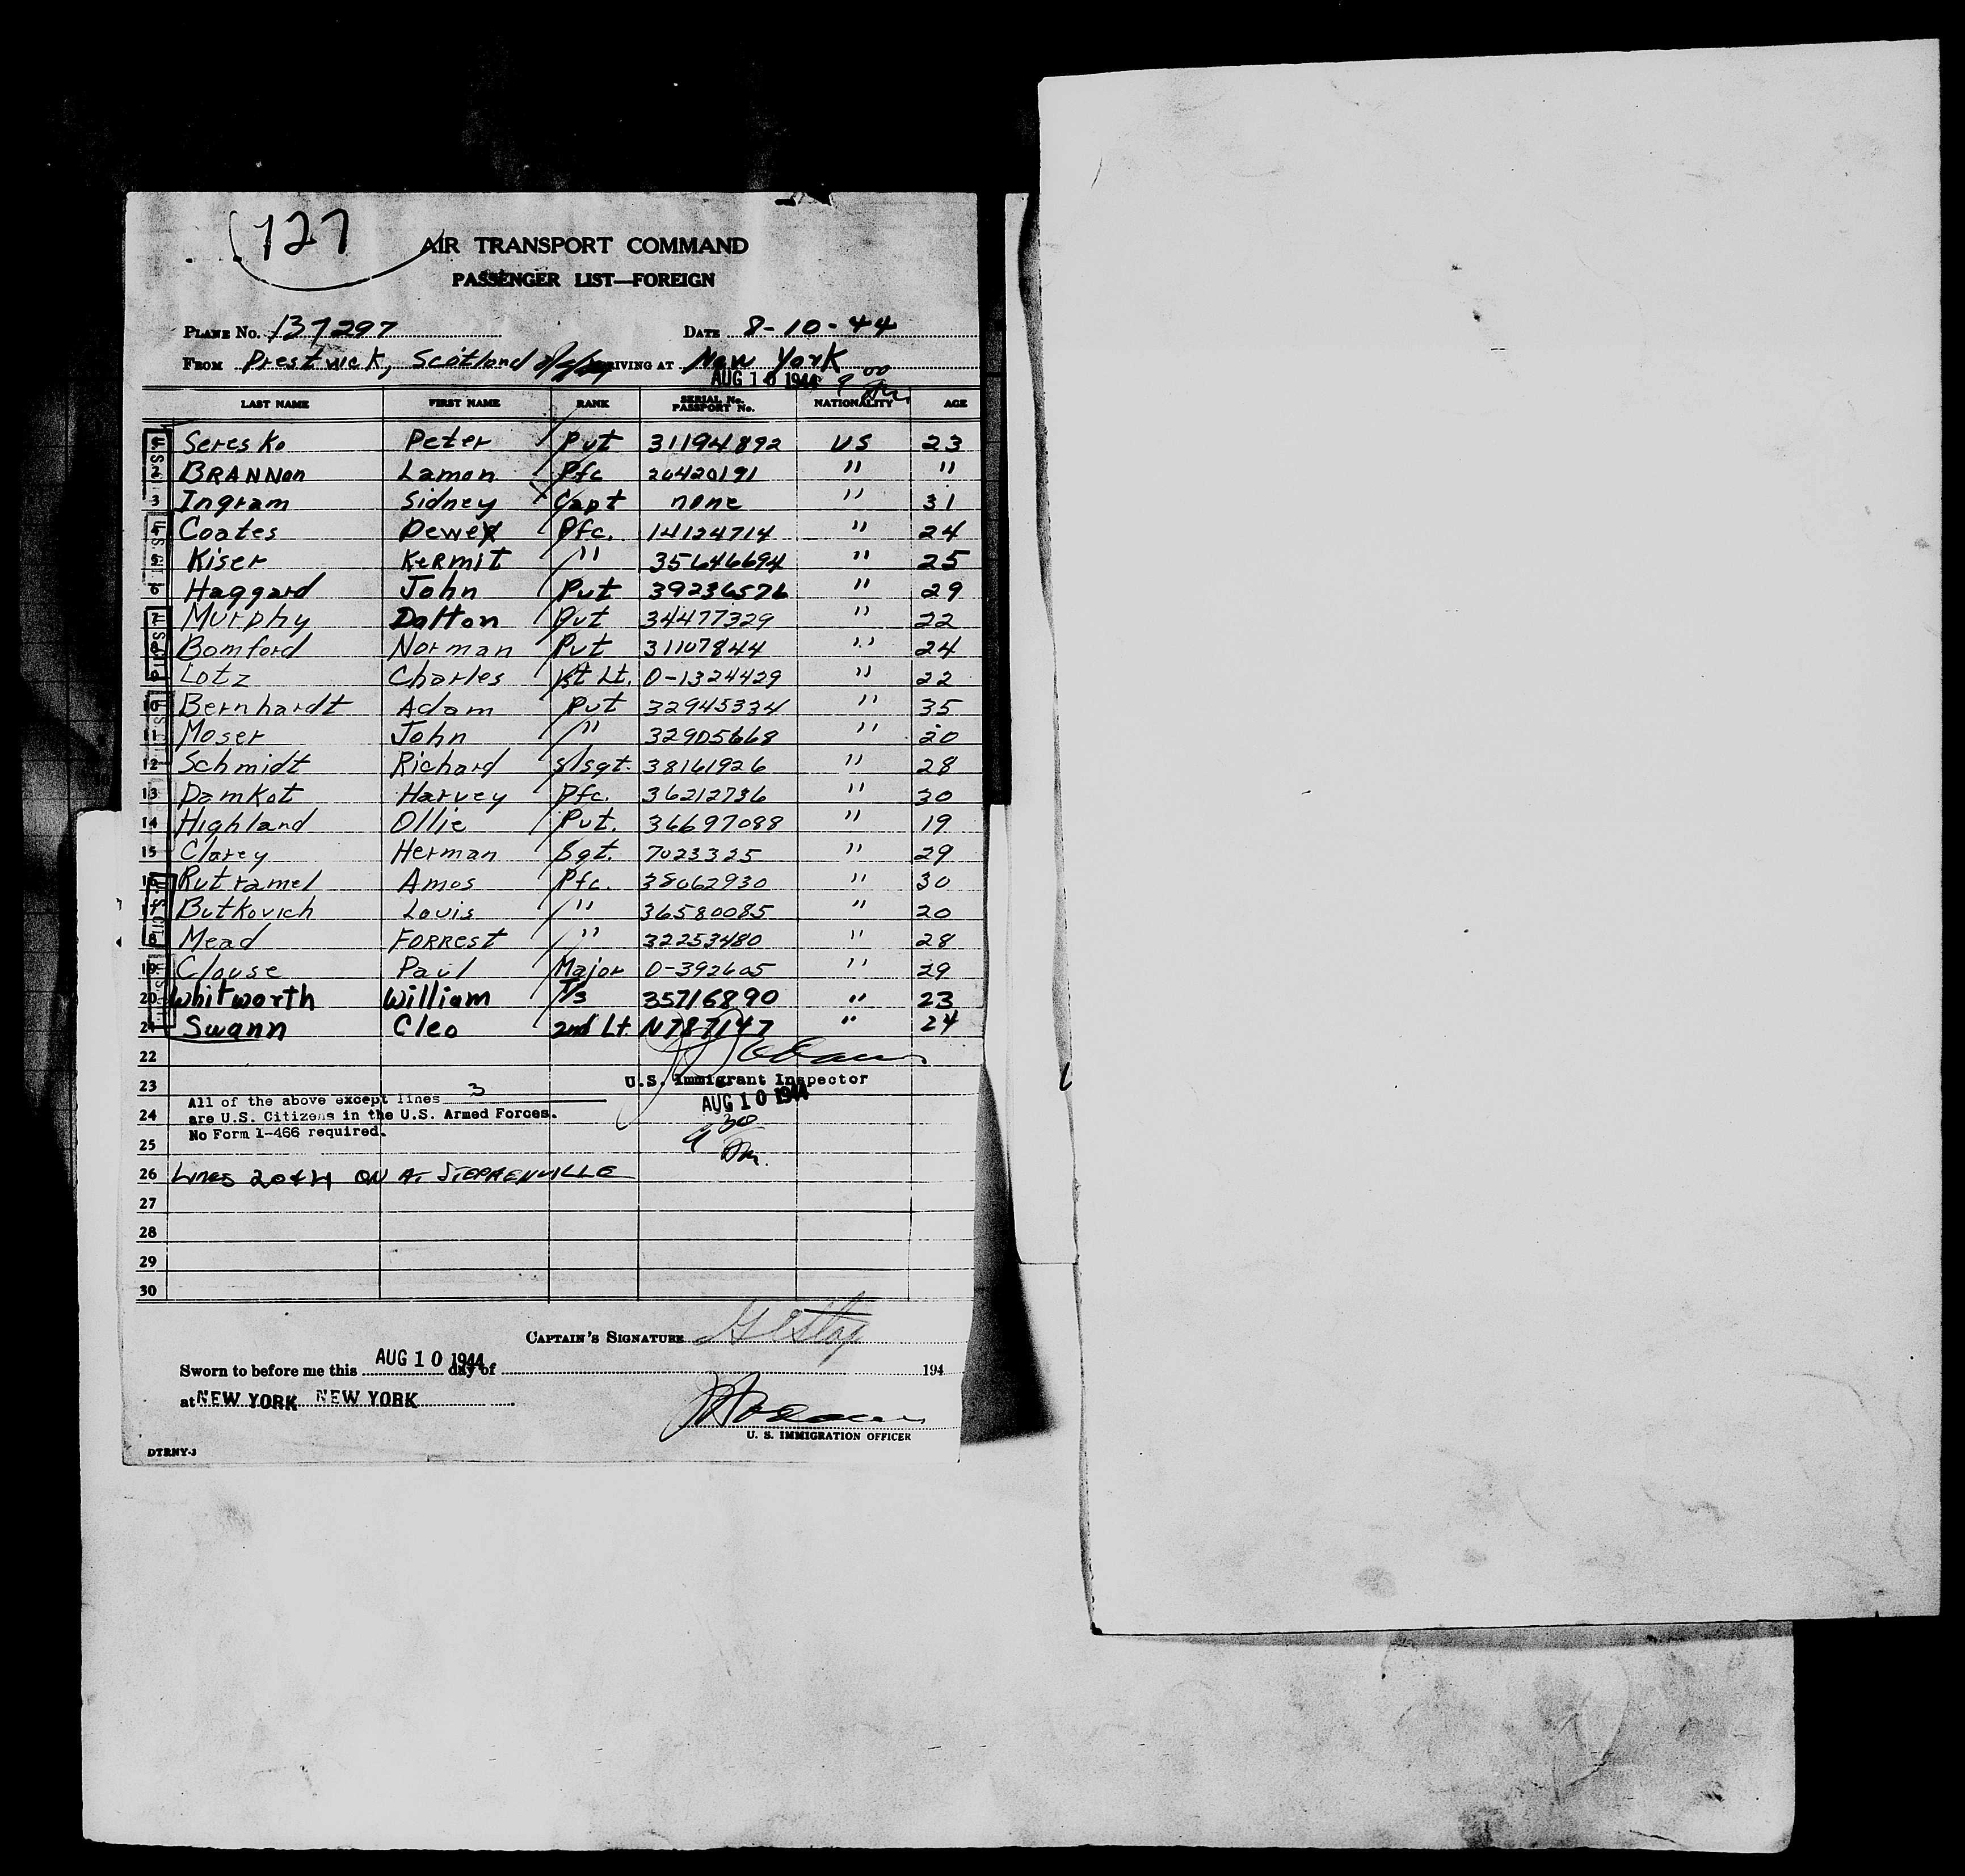 127
AIR TRANSPORT COMMAND
PASSENGER LIST—FOREIGN
PLANE No. 137297 DATE 8-10-44
FROM Prestwick, Scotland ARRIVING AT New York
AUG 10 1944 9 00
LAST NAME FIRST NAME RANK SERIAL No. PASSPORT No. NATIONALITY AGE
1 Seresko Peter Pvt 31194892 US 23
2 BRANNon Lamon Pfc 20420191 " "
3 Ingram Sidney Capt none " 31
4 Coates Dewey Pfc. 14124714 " 24
5 Kiser KeRmit " 35646694 " 25
6 Haggard John Pvt 39236576 " 29
7 Murphy Dalton Pvt 34477329 " 22
8 Bomford Norman Pvt 31107844 " 24
9 Lotz Charles 1st Lt. O-1324429 " 22
10 Bernhardt Adam Pvt 32945334 " 35
11 Moser John " 32905668 " 20
12 Schmidt Richard S/sgt. 38161926 " 28
13 Damkot Harvey Pfc. 36212736 " 30
14 Highland Ollie Pvt. 36697088 " 19
15 Clarey Herman Sgt. 7023325 " 29
16 Rutramel Amos Pfc. 38062930 " 30
17 Butkovich Louis " 36580085 " 20
18 Mead FORRest " 32253480 " 28
19 Clouse Paul Major O-392605 " 29
20 Whitworth William T/3 35716890 " 23
21 Swann Cleo 2nd Lt N787147 " 24
22
23 U.S. Immigrant Inspector
All of the above except lines 3
AUG 10 1944
24 are U.S. Citizens in the U.S. Armed Forces.
9 30
No Form 1-466 required.
25
26 Lines 20+21 ON AT STEPHENVILLE
27
28
29
30
CAPTAIN'S SIGNATURE
Sworn to before me this AUG 10 1944 day of 194
at NEW YORK NEW YORK
U. S. IMMIGRATION OFFICER
DTRNY-3